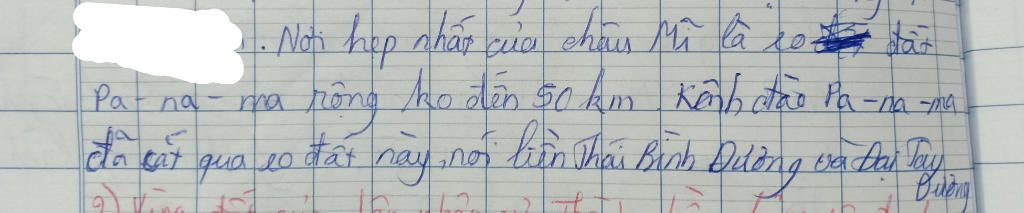 . Nơi hẹp nhất của châu Mĩ là eo đất
Pa-na-ma rộng ko đến 50 km. Kênh đào Pa-na-ma
đã cắt qua eo đất này, nối liền Thái Bình Dương và Đại Tây
Dương